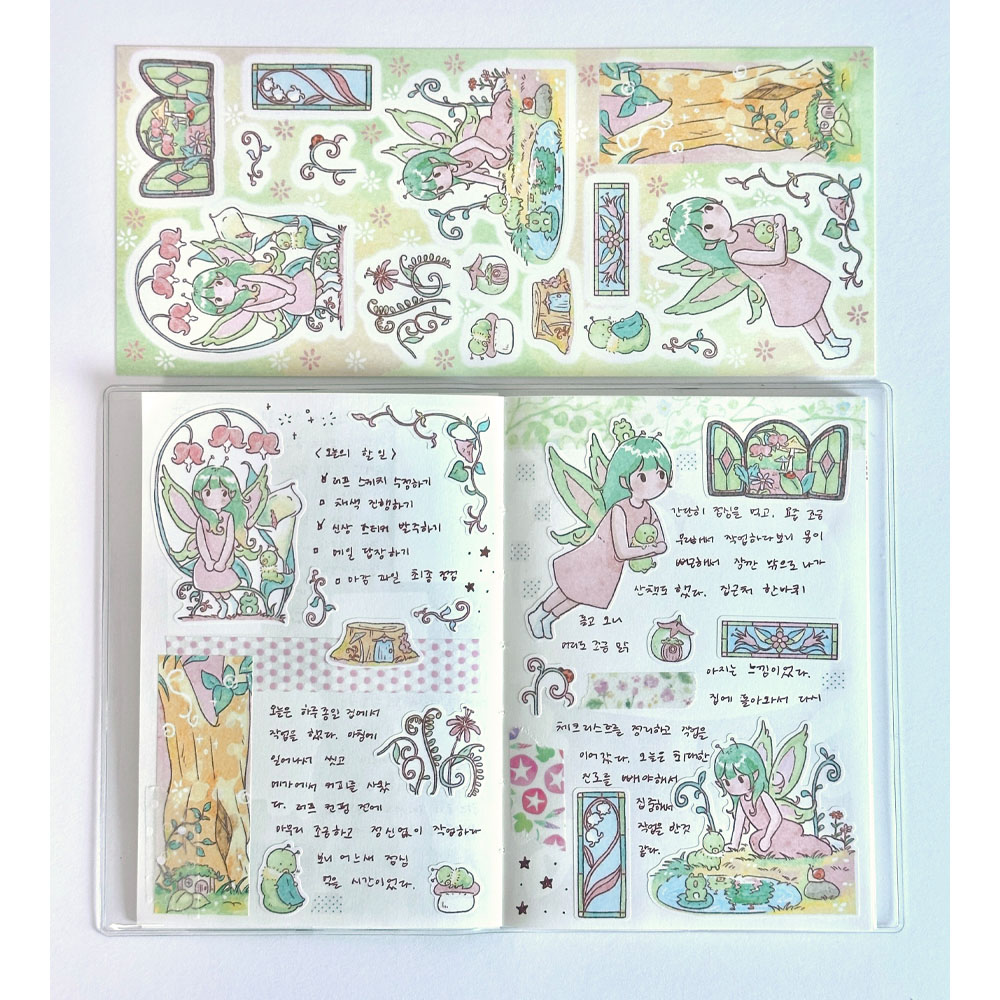 <오늘의 할 일>
러프 스케치 수정하기
채색 진행하기
신상 스티커 발주하기
메일 답장하기
마감 파일 최종 점검
오늘은 하루종일 집에서
작업을 했다. 아침에
일어나서 씻고
메가에서 커피를 사왔
다. 러프 컨펌 전에
마무리 조금하고 정신없이 작업하다
보니 어느새 점심
먹을 시간이었다.
간단히 점심을 먹고, 요즘 조금
무리해서 작업하다보니 몸이
뻐근해서 잠깐 밖으로 나가
산책도 했다. 집근처 한바퀴
돌고 오니
머리도 조금 맑
아지는 느낌이었다.
집에 돌아와서 다시
체크리스트를 정리하고 작업을
이어갔다. 오늘은 최대한
진도를 빼야해서
집중해서
작업을 한것
같다.